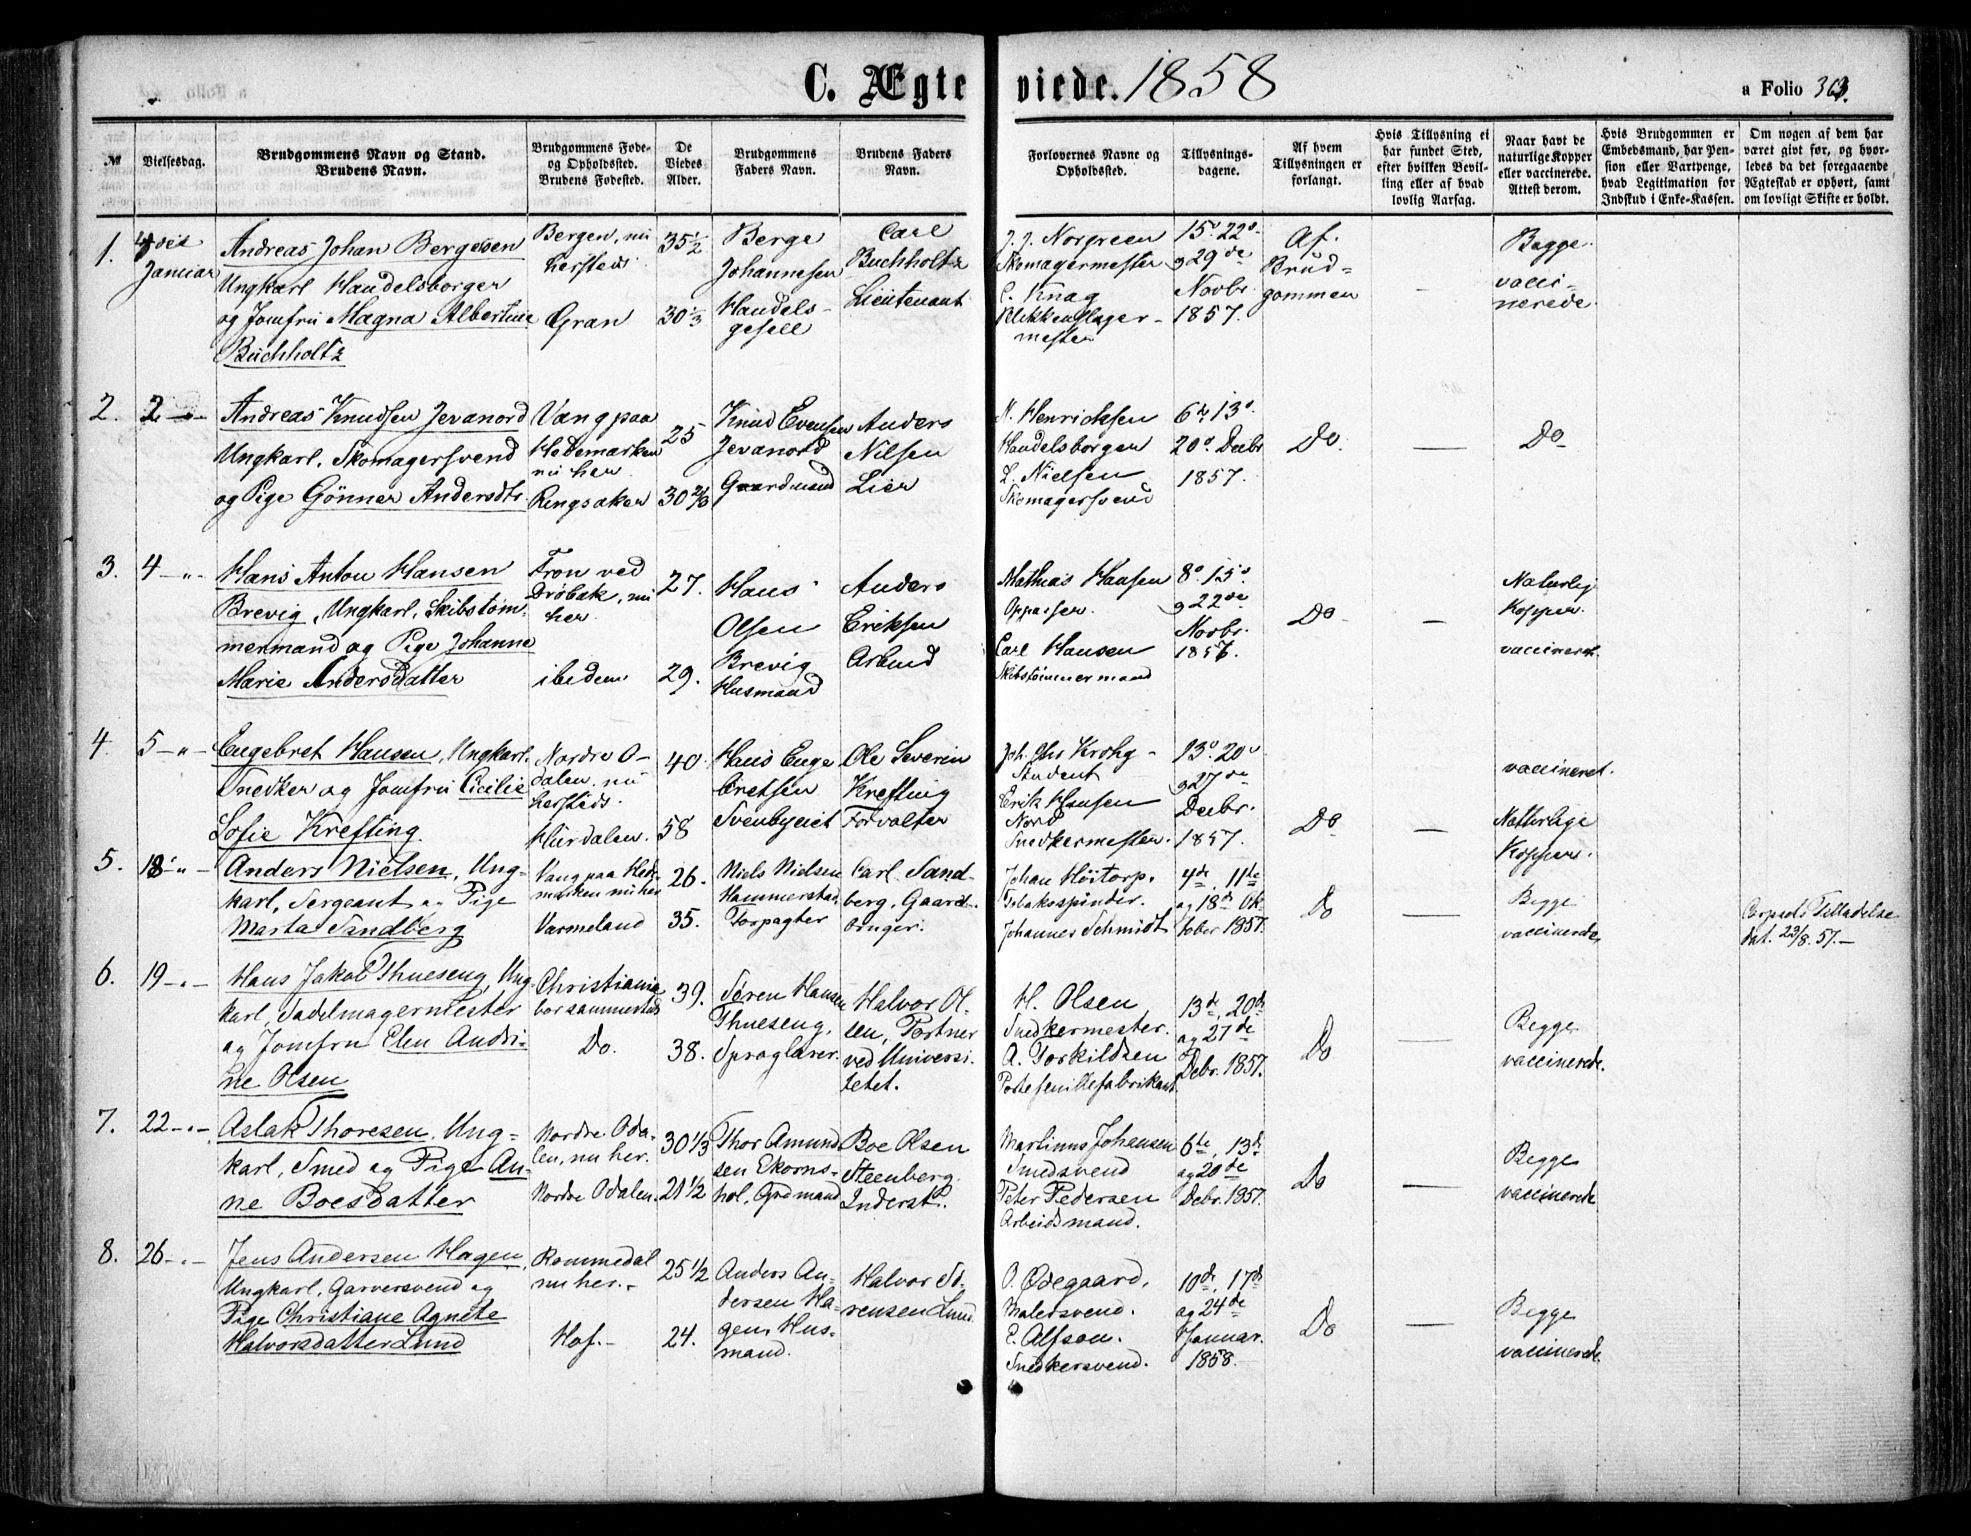 C. Ægte viede. 1858
a Folio
№
Vielsesdag.
Brudgommens Navn og Stand.
Brudens Navn.
Brudgommens Føde-
og Opholdssted.
Brudens Fødested.
De
Viedes
Alder.
Brudgommens
Faders Navn.
Brudens Faders
Navn.
Forlovernes Navne og
Opholdssted.
Tillysnings-
dagene.
Af hvem
Tillysningen er
forlangt.
Hvis Tillysning ei
har fundet Sted,
efter hvilken Bevil-
ling eller af hvad
lovlig Aarsag.
Naar havt de
naturlige Kopper
eller vaccinerede.
Attest derom.
Hvis Brudgommen er
Embedsmand, har Pen-
sion eller Vartpenge,
hvad Legitimation for
Indskud i Enke-Kassen.
Om nogen af dem har
været gift før, og hvor-
ledes da det foregaaende
Ægteskab er ophørt, samt
om lovligt Skifte er holdt.
1.
Januar
Andreas Johan Bergesen
Ungkarl Handelsborger
og Jomfru Magna Albertine
Buchholtz
Bergen, nu
hersteds
Gran
35½
30⅓
Berge
Johannesen
Handels-
gesell
Carl
Buchholtz
Lieutenant
J. J. Norgreen
Skomagermester
C. Knag
Blikkenslager-
mester
15º 22º
9 29de
Novbr.
1857.
Af
Brud-
gommen
Begge
vacci-
nerede
2.
2 -"-
Andreas Knudsen Jevanord
Ungkarl. Skomagersvend
og Pige Gönner Andersdtr.
Vang paa
Hedemarken
nu her
Ringsaker
25
30⅔
Knud Evensen
Jevanord
Gaardmand
Anders
Nilsen
Lier
N. Henricksen
Handelsborger
L. Nielsen
Skomagersvend
6te 13º
20º Decbr
1857.
Do.
Do
3.
4 -"-
Hans Anton Hansen
Brevig, Ungkarl, Skibstøm-
mermand og Pige Johanne
Marie Andersdatter
Fron ved
Drøbak, nu
her
ibidem
27.
29.
Hans
Olsen
Brevig
Husmand
Anders
Eriksen
Mathias Hansen
Oppasser.
Carl Hansen
Skibstömmermand
8º. 15º.
9 22de
Novbr.
1857.
Do
Naturlige
Kopper.
vaccineret.
4.
5 -"-
Engebret Hansen, Ungkarl.
Snedker og Jomfru Cicilie
Sofie Krefting.
Nordre O-
dalen, nu
hersteds.
Hurdalen.
40
58
Hans Enge
bretsen
Svenbyeiet
Ole Severin
Krefting
Forvalter
Joh. Chr Krohg -
Student
Erik Hansen
Nord
Snedkermester.
13º. 20º
9 27de
Decbr.
1857.
Do
vaccineret.
Naturlige
Kopper.
5.
18 -"-
Anders Nielsen, Ung-
karl, Sergeant og Pige
Marta Sandberg
Vang paa Hed-
marken nu her
Varmeland
26.
35.
Niels Nielsen
Hammerstad
Forpagter
Carl Sand-
berg, Gaard-
bruger.
Johan Høitorp.
Tobaksspinder.
Johannes Schmidt
4de, 11te
og 18de Ok-
tober 1857.
Do
Begge
vaccinerede
Corpsets Tilladelse
dat. 23/8. 57.-
6.
19 -"-
Hans Jakob Thueseng, Ung-
karl, Sadelmagermester
og Jomfru Elen Andri-
ne Olsen
Christiania
bor sammesteds
Do.
39.
38.
Søren Hansen
Thueseng,
Sproglærer.
Halvor Ol-
sen, Portner
ved Universi-
tetet.
H. Olsen
Snedkermester.
A. Torkildsen
Portefeuillefabrikant
13de, 20de
og 27de
Debr. 1857.
Do
Begge
vaccinerede.
7.
22 -"-
Aslak Thoresen, Ung-
karl, Smed og Pige An-
ne Boesdatter
Nordre Oda-
len, nu her.
Nordre Odalen.
30 1/3
21 1/2
Thor Amund
sen Ekorns-
hol, Grdmand
Boe Olsen
Steenberg.
Inderst.
Martinus Johansen
Smedsvend
Peter Pedersen
Arbeidsmand.
6te, 13de
og 20de
Debr. 1857.
Do
Begge
vaccinerede
8.
26 -"-
Jens Andersen Hagen,
Ungkarl, Garversvend og
Pige Christiane Agnete
Halvorsdatter Lund
Rommedal
nu her.-
Hof.-
25 1/2
24.
Anders An-
dersen Ha-
gen, Hus-
mand.
Halvor So-
rensen Lund.
O. Ødegaard,
Malersvend.
E. Alfson.
Snedkersvend.
10de, 17de
og 24de
Januar.
1858.
Do
Begge
vaccinerede